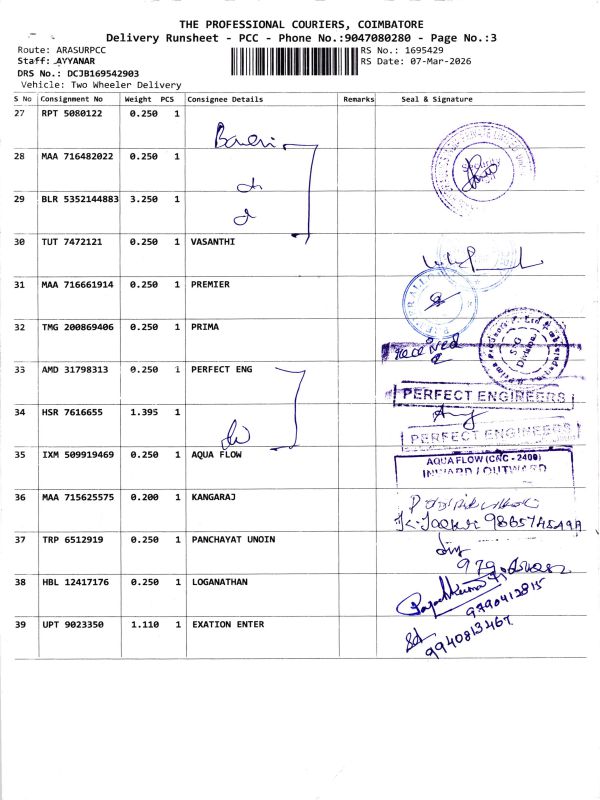 THE PROFESSIONAL COURIERS, COIMBATORE
Delivery Runsheet - PCC - Phone No.:9047080280 - Page No.:3
Route: ARASURPCC RS No.: 1695429
Staff: AYYANAR RS Date: 07-Mar-2026
DRS No.: DCJB169542903
Vehicle: Two Wheeler Delivery
S No Consignment No Weight PCS Consignee Details Remarks Seal & Signature
27 RPT 5080122 0.250 1
28 MAA 716482022 0.250 1
Security
29 BLR 5352144883 3.250 1
30 TUT 7472121 0.250 1 VASANTHI
31 MAA 716661914 0.250 1 PREMIER
32 TMG 200869406 0.250 1 PRIMA
Received
33 AMD 31798313 0.250 1 PERFECT ENG
PERFECT ENGINEERS
34 HSR 7616655 1.395 1
PERFECT ENGINEERS
35 IXM 509919469 0.250 1 AQUA FLOW
AQUA FLOW (CNC - 2400)
INWARD / OUTWARD
36 MAA 715625575 0.200 1 KANGARAJ
37 TRP 6512919 0.250 1 PANCHAYAT UNOIN
38 HBL 12417176 0.250 1 LOGANATHAN
9790412815
39 UPT 9023350 1.110 1 EXATION ENTER
9940813467